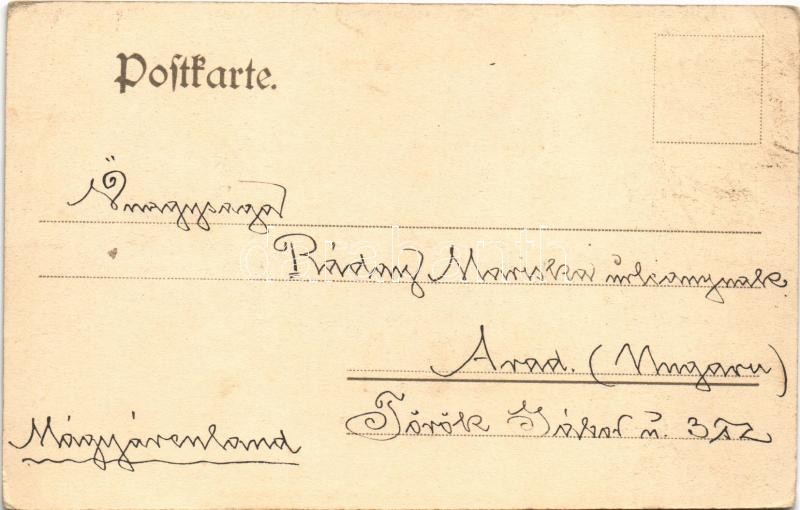 Postkarte.
Őnagysága
Ráday Mariska urleanynak
Arad. (Ungarn)
Török Gábor u. 3
Mágyárenland